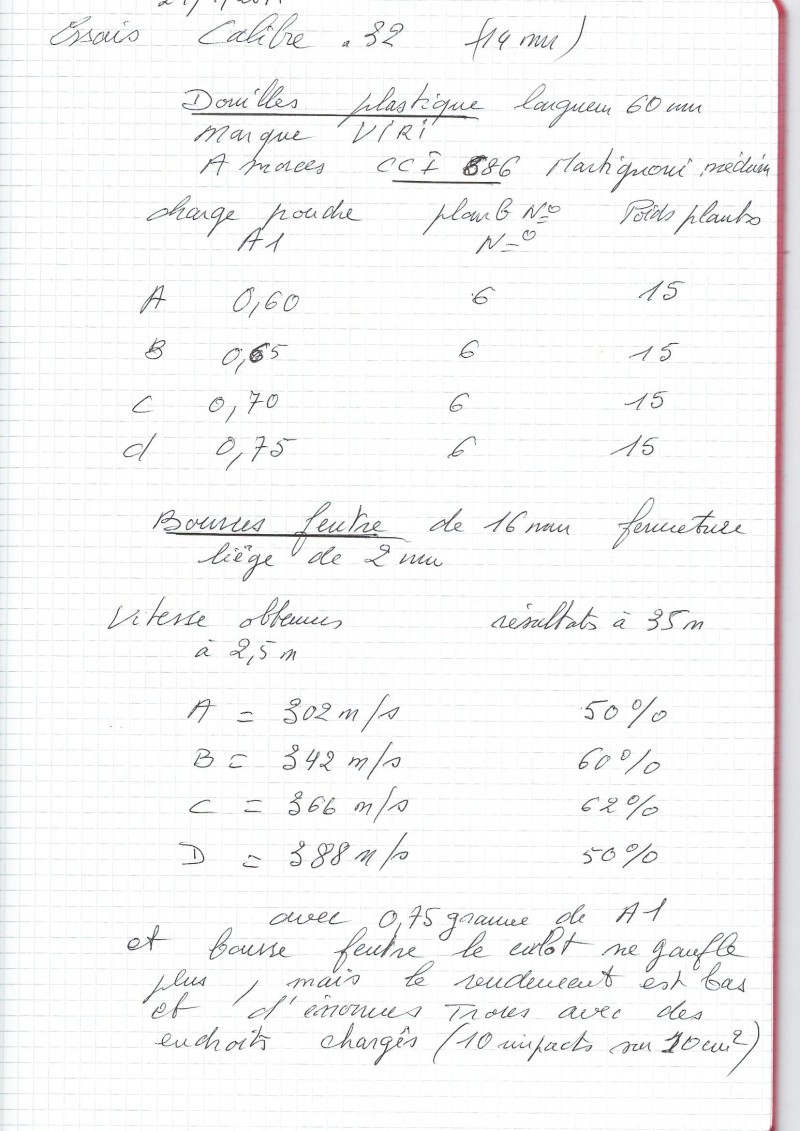 Essais Calibre .32 (14 mm)
Douilles plastique longueur 60 mm
Marque VIRI
Amorces CCI 686 Martignoni médium
charge poudre plomb N=o Poids plombs
A1 N=o
A 0,60 6 15
B 0,65 6 15
C 0,70 6 15
d 0,75 6 15
Bourres feutre de 16 mm fermeture
liège de 2 mm
Vitesse obtenues résultats à 35 m
à 2,5 m
A = 302 m/s 50%
B = 342 m/s 60%
C = 366 m/s 62%
D = 388 m/s 50%
avec 0,75 gramme de A1
et bourre feutre le culot ne gonfle
plus, mais le rendement est bas
et d'énormes Trous avec des
endroits chargés (10 impacts sur 10 cm²)